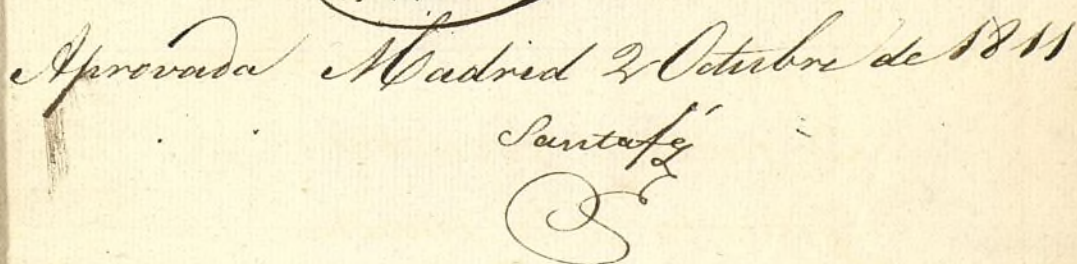 Aprovada Madrid 2 Octubre de 1811
Santafé